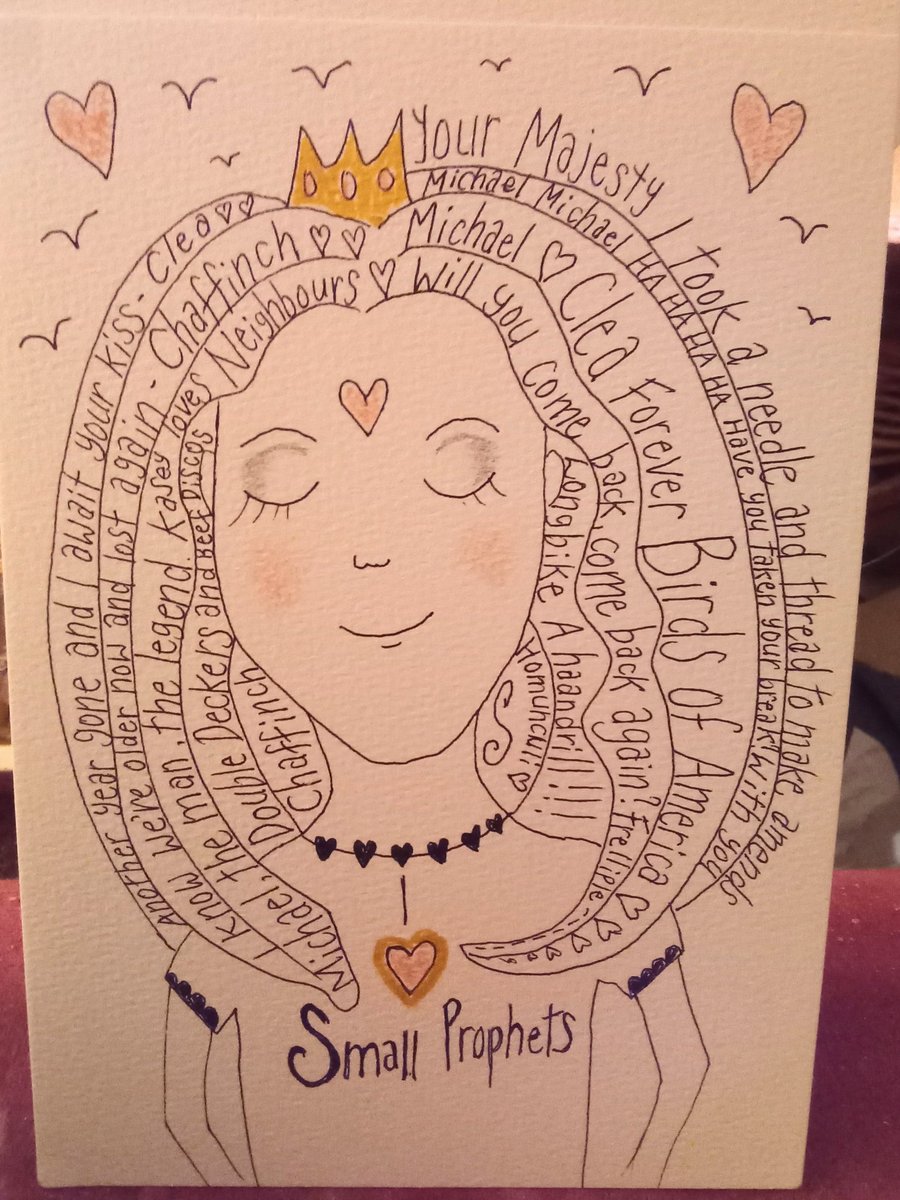 Your Majesty I took a needle and thread to make amends
Michael Michael Michael HA HA HA HA HA Have you taken your break? With you
Michael ♡ Clea Forever Birds of America
Another year gone and I await your kiss - Clea
I know we're older now and lost again - Chaffinch
Michael, the man, the legend. Kasey loves Neighbours ♡ Will you come back, come back again?
Double Deckers and Beef Discos
Chaffinch
Longbike A haandrill!!!!!
Homunculi
S
Small Prophets